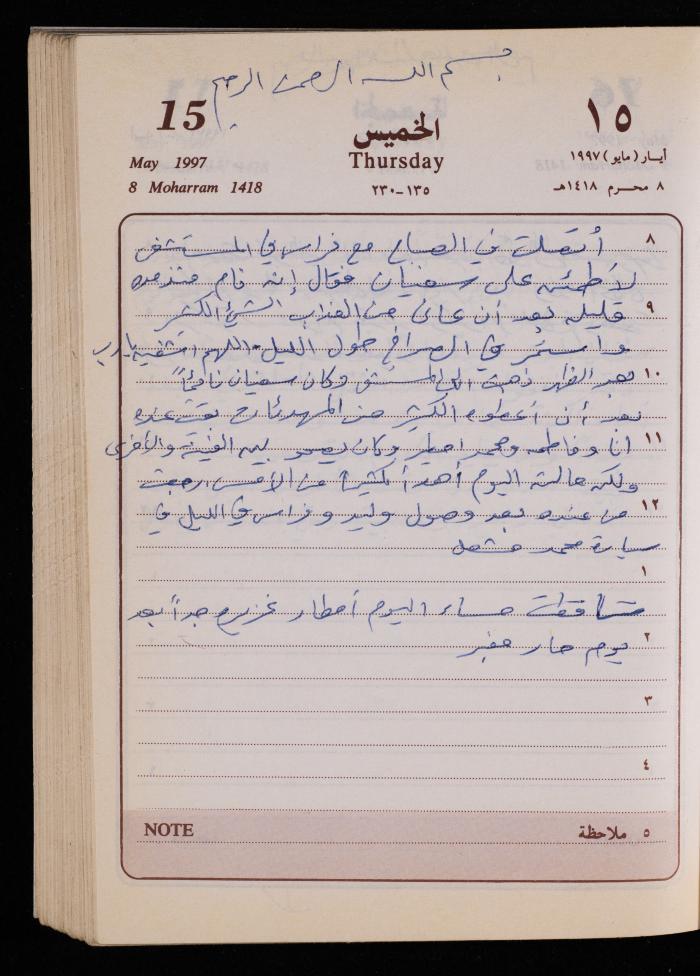 بسم الله الرحمن الرحيم
15 الخميس ١٥
May 1997 Thursday أيار (مايو) ١٩٩٧
8 Moharram 1418 ١٣٥-٢٣٠ ٨ محرم ١٤١٨هـ
٨ أتصلت في الصباح مع فراس في المستشفى
لأطمئن على سفيان فقال إنه نام منذ مده
٩ قليله بعد أن عانى من العذاب الشيئ الكثير
واستمر في الصراخ طول الليل - اللهم اشفيه يارب
١٠ بعد الظهر ذهبت الى المستشفى وكان سفيان نائماً
بعد أن أعطوه الكثير من المهدئات بقيت عنده
١١ انا وفاطمه ومحمد وكان يصحو بين الفينة والأخرى
ولكن حالته اليوم أهدأ كثيراً من الأمس رجعت
١٢ من عنده بعد وصول وليد وفراس في الليل في
سيارة محمد مشعل
١
تساقطت مساء اليوم أمطار غزيره جداً بعد
٢ يوم حار مغبر
٣
٤
NOTE ٥ ملاحظة